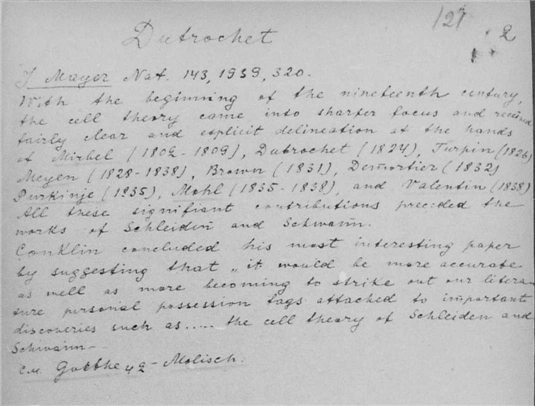 127 2
Dutrochet
J Mayer Nat. 143, 1939, 320.
With the beginning of the nineteenth century,
the cell theory came into sharper focus and received
fairly clear and esplicit delineation at the hands
of Mirbel (1802 - 1809), Dutrochet (1824), Turpin (1826)
Meyen (1828-1838), Brown (1831), Demortier (1832)
Purkinje (1835), Mohl (1835-1838), and Valentin (1838)
All these signifiant contributions preceded the
works of Schleiden and Schwann.
Conklin concluded his most interesting paper
by suggesting that „it would be more accurate
as well as more becoming to strike out our litera-
ture personal possession tags attached to important
discoveries such as..... the cell theory of Schleiden and
Schwann -
Molisch.